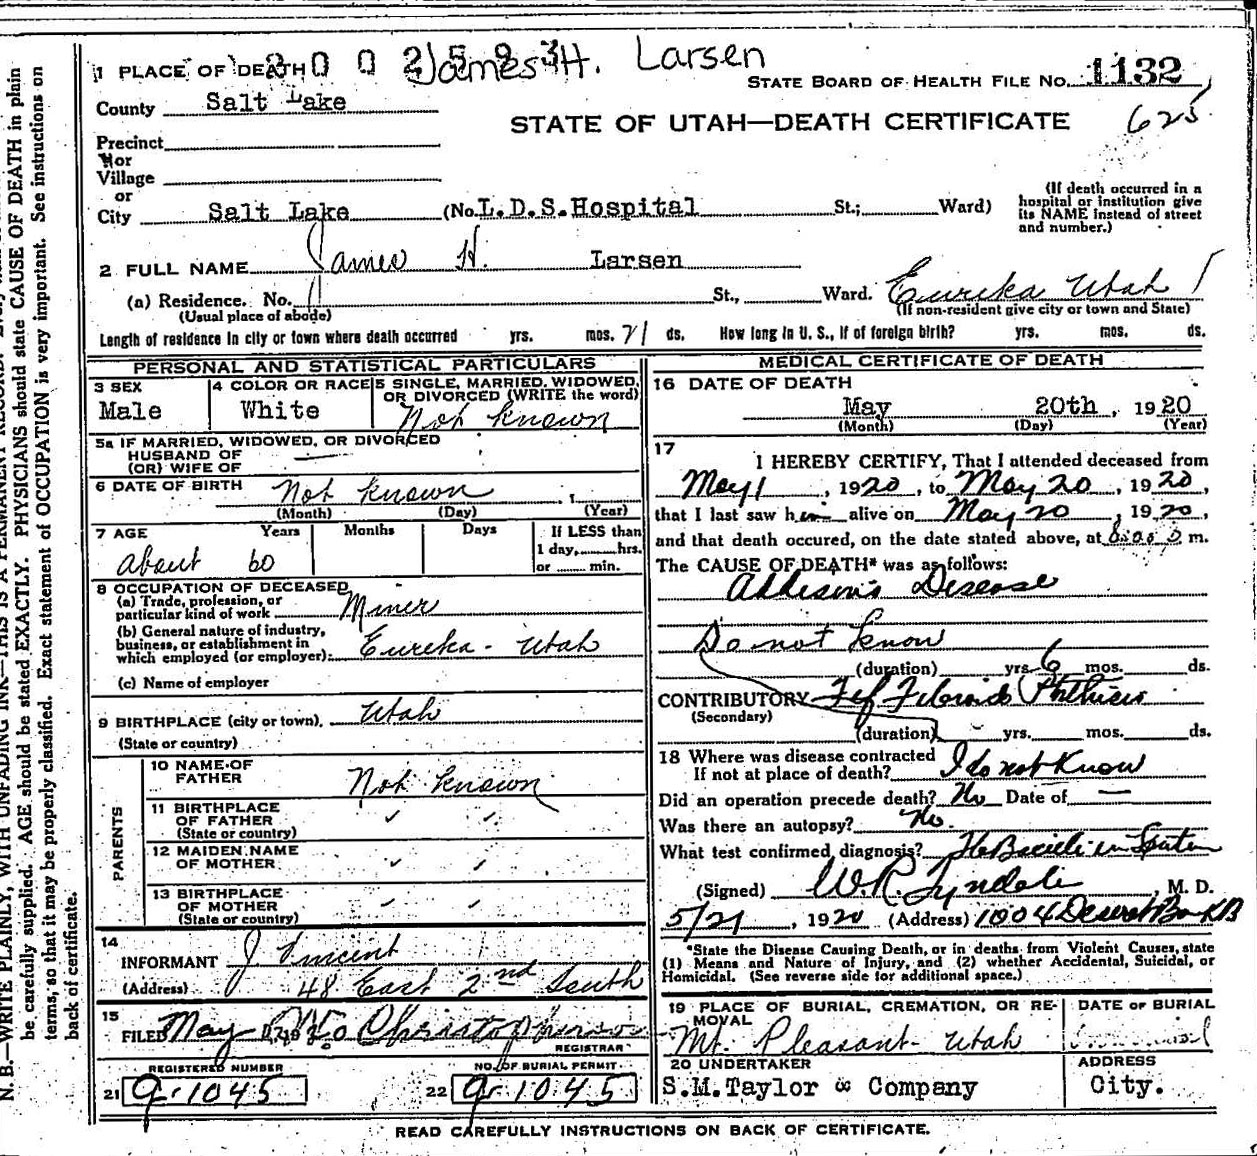 2002523 James H. Larsen
1 PLACE OF DEATH
STATE BOARD OF HEALTH FILE NO. 1132
County Salt Lake
625
STATE OF UTAH—DEATH CERTIFICATE
Precinct
or
Village
or
City Salt Lake (No. L.D.S.Hospital St.; Ward)
(If death occurred in a hospital or institution give its NAME instead of street and number.)
2 FULL NAME James H. Larsen
(a) Residence. No. St., Ward. Eureka Utah
(Usual place of abode) (If non-resident give city or town and State)
Length of residence in city or town where death occurred yrs. mos. 21 ds. How long in U. S., if of foreign birth? yrs. mos. ds.
PERSONAL AND STATISTICAL PARTICULARS
3 SEX Male
4 COLOR OR RACE White
5 SINGLE, MARRIED, WIDOWED, OR DIVORCED (WRITE the word) Not known
5a IF MARRIED, WIDOWED, OR DIVORCED
HUSBAND OF
(OR) WIFE OF —
6 DATE OF BIRTH Not known
(Month) (Day) (Year)
7 AGE Years Months Days If LESS than
1 day, hrs.
about 60 or min.
8 OCCUPATION OF DECEASED
(a) Trade, profession, or
particular kind of work Miner
(b) General nature of industry,
business, or establishment in
which employed (or employer): Eureka - Utah
(c) Name of employer
9 BIRTHPLACE (city or town), Utah
(State or country)
PARENTS
10 NAME OF
FATHER Not known
11 BIRTHPLACE
OF FATHER ✓ ✓
(State or country)
12 MAIDEN NAME
OF MOTHER ✓ ✓
13 BIRTHPLACE
OF MOTHER ✓ ✓
(State or country)
14
INFORMANT J Vincent
(Address) 48 East 2nd South
15
FILED May 192
REGISTRAR
REGISTERED NUMBER
21 1045
NO. OF BURIAL PERMIT
22 1045
MEDICAL CERTIFICATE OF DEATH
16 DATE OF DEATH
May 20th, 1920
(Month) (Day) (Year)
17
I HEREBY CERTIFY, That I attended deceased from
May 1, 1920, to May 20, 1920,
that I last saw him alive on May 20, 1920,
and that death occured, on the date stated above, at m.
The CAUSE OF DEATH* was as follows:
Addison's Disease
Do not know
(duration) yrs. 6 mos. ds.
CONTRIBUTORY Fibroid Phthisis
(Secondary)
(duration) yrs. mos. ds.
18 Where was disease contracted
If not at place of death? I do not know
Did an operation precede death? No Date of —
Was there an autopsy? No.
What test confirmed diagnosis? Bacilli in Sputum
(Signed) W.R. Tyndale, M. D.
5/21, 1920 (Address) 1004 Deseret Bank B
*State the Disease Causing Death, or in deaths from Violent Causes, state
(1) Means and Nature of Injury, and (2) whether Accidental, Suicidal, or
Homicidal. (See reverse side for additional space.)
19 PLACE OF BURIAL, CREMATION, OR REMOVAL
Mt. Pleasant - Utah
DATE OF BURIAL
20 UNDERTAKER
S.M.Taylor & Company
ADDRESS
City.
READ CAREFULLY INSTRUCTIONS ON BACK OF CERTIFICATE.
N. B.—WRITE PLAINLY, WITH UNFADING INK—THIS IS A PERMANENT RECORD.
be carefully supplied. AGE should be stated EXACTLY. PHYSICIANS should state CAUSE OF DEATH in plain
terms, so that it may be properly classified. Exact statement of OCCUPATION is very important. See instructions on
back of certificate.